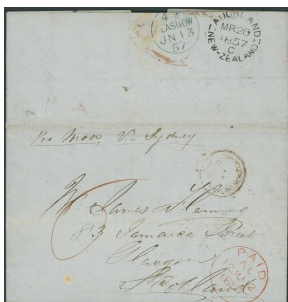 GLASGOW
JN 13
57
AUCKLAND
MR 20
1857
C
NEW-ZEALAND
Via Sydney
Mr. James Fleming
83 Jamaica Street
Glasgow
Scotland
PAID